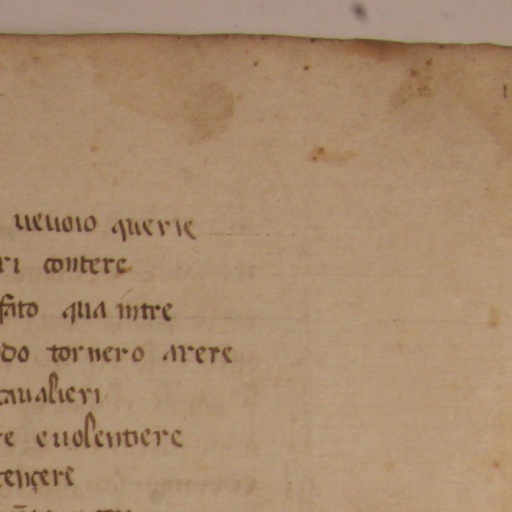 ueuoio querie
ri contere
fato qua intre
do tornero arere
caualieri
re e uolentiere
tençere